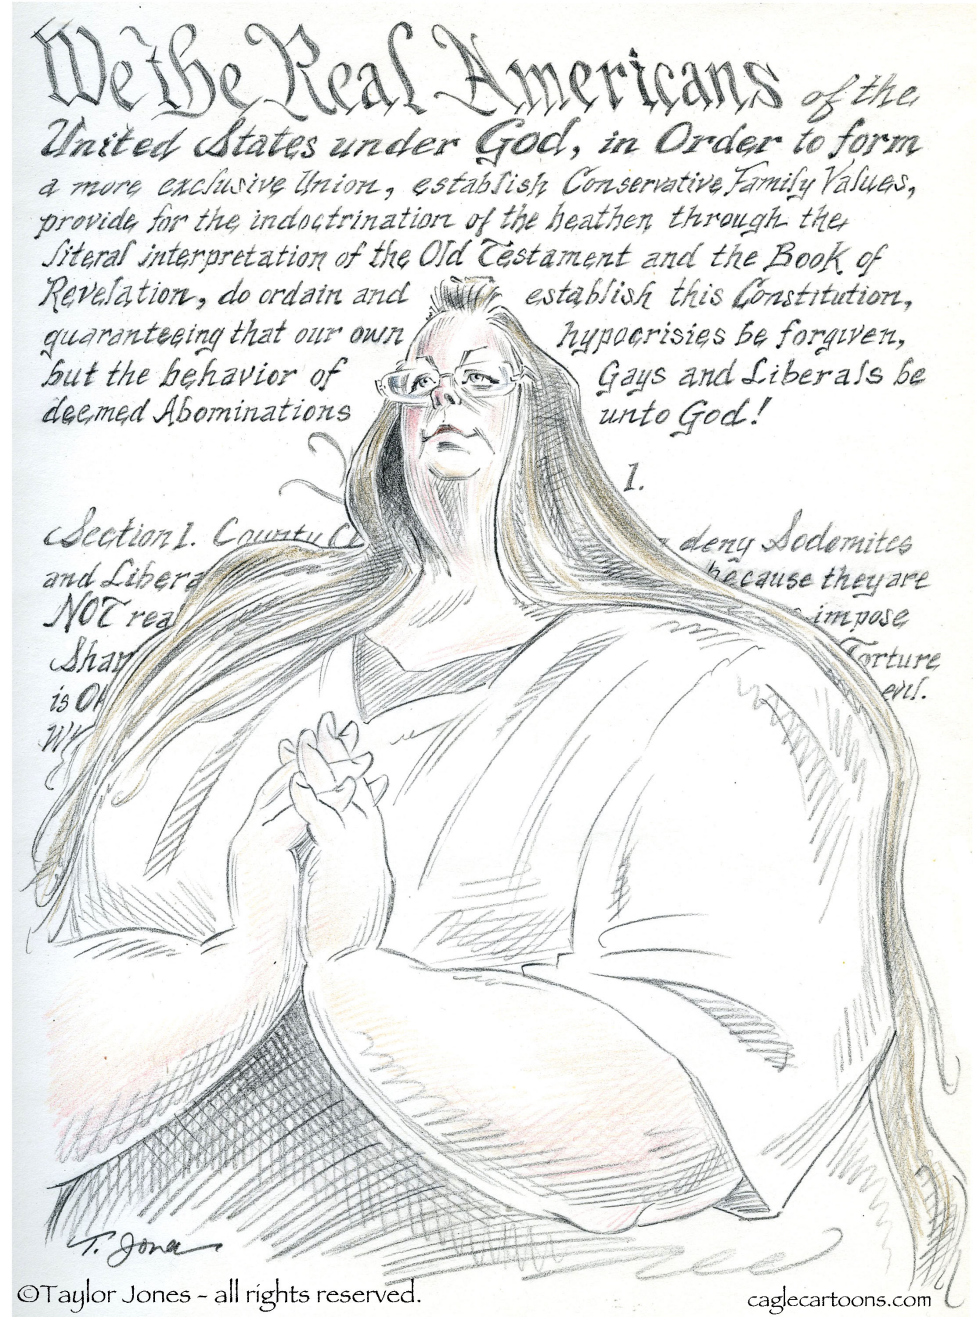 We the Real Americans of the
United States under God, in Order to form
a more exclusive Union, establish Conservative Family Values,
provide for the indoctrination of the heathen through the
literal interpretation of the Old Testament and the Book of
Revelation, do ordain and establish this Constitution,
guaranteeing that our own hypocrisies be forgiven,
but the behavior of Gays and Liberals be
deemed Abominations unto God!
1.
Section 1. County deny Sodomites
and because they are
NOT impose
Torture
is
T. Jones
©Taylor Jones - all rights reserved.
caglecartoons.com